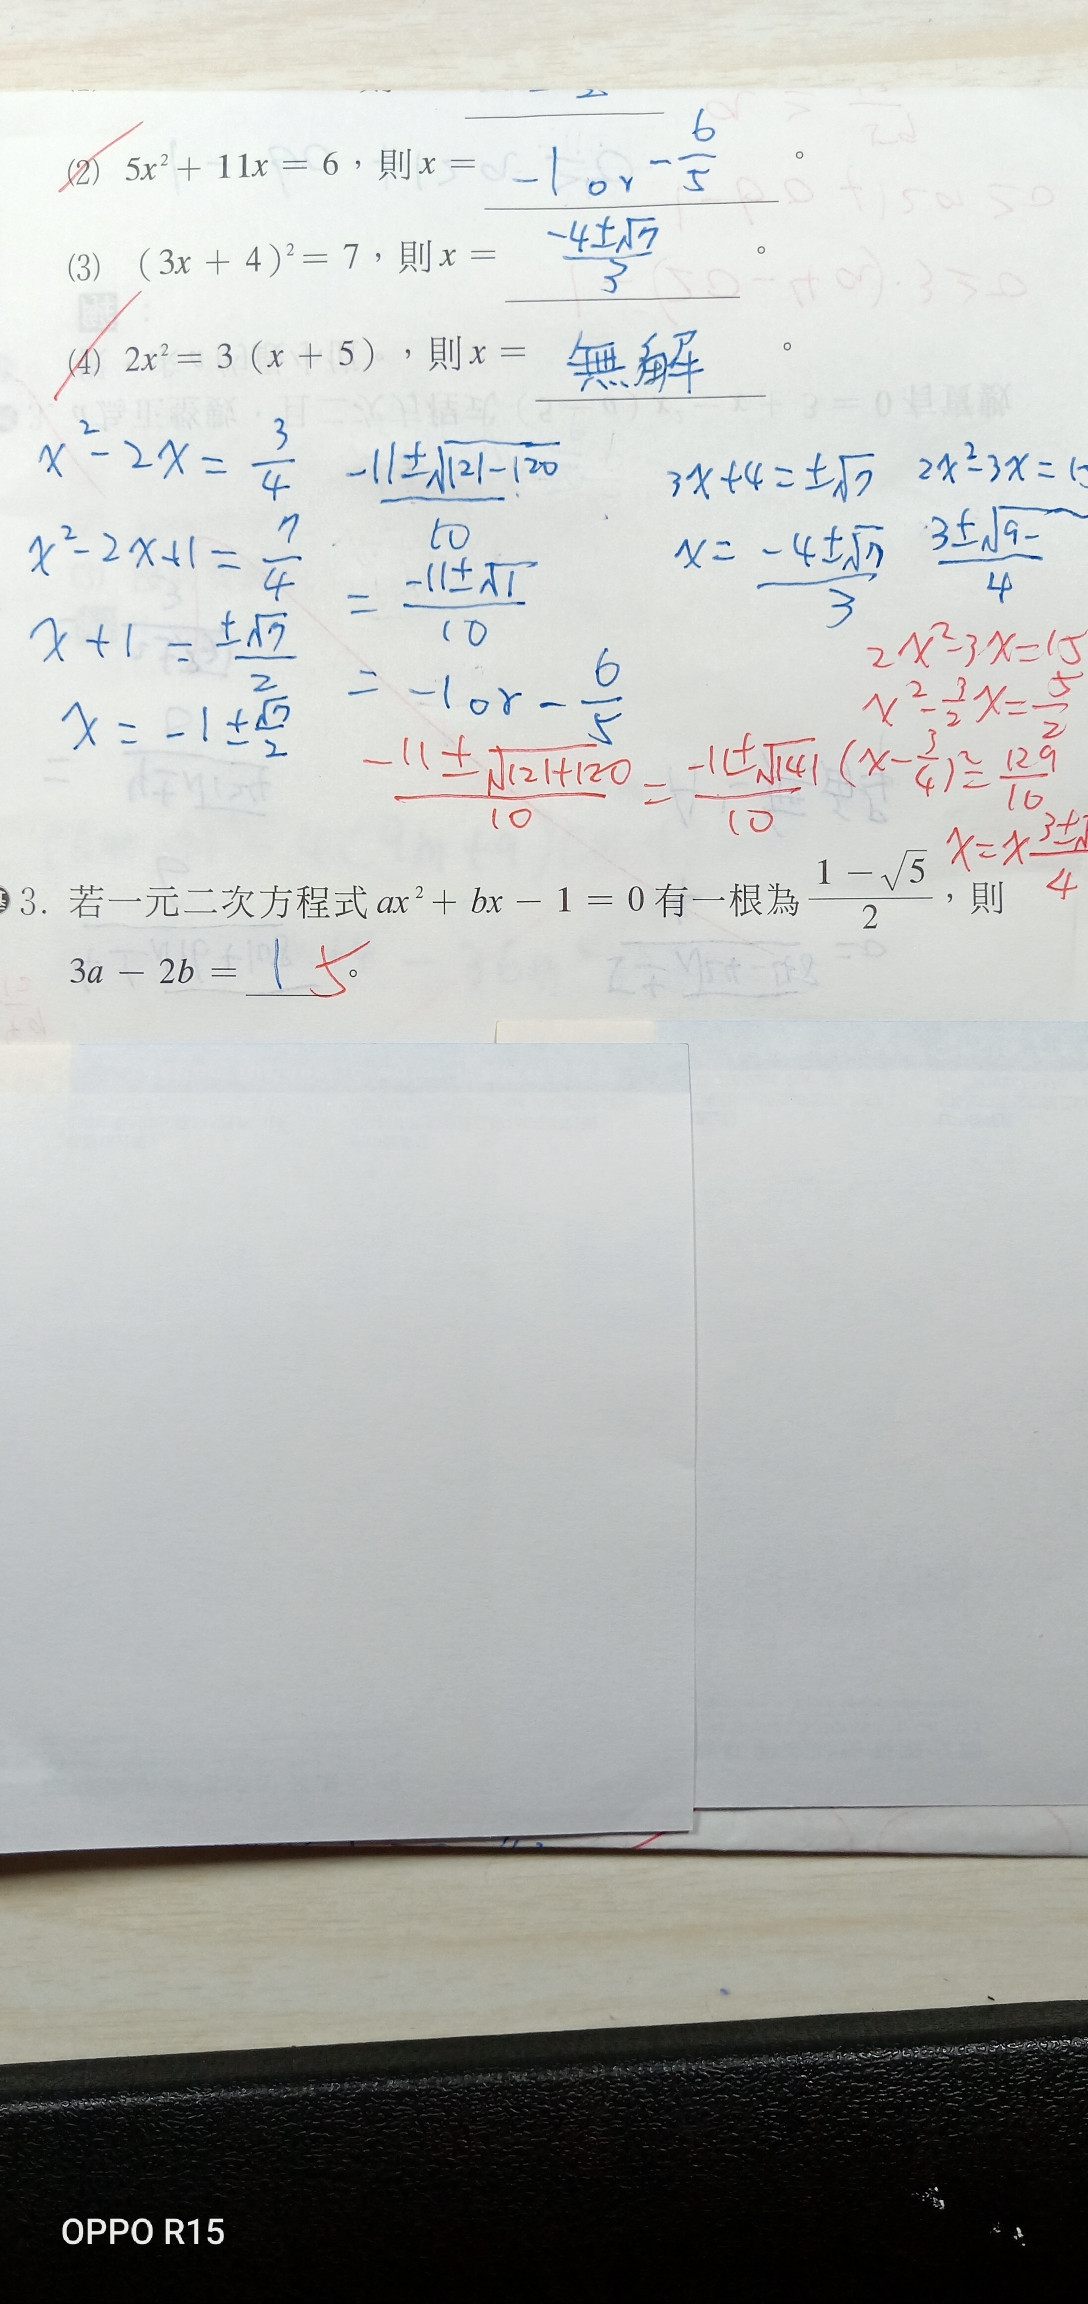 (2) 5x² + 11x = 6，則 x = -1 or -6/5 。
(3) (3x + 4)² = 7，則 x = (-4±√7)/3 。
(4) 2x² = 3 (x + 5)，則 x = 無解 。
x² - 2x = 3/4
x² - 2x + 1 = 7/4
x + 1 = ±√7/2
x = -1 ± √7/2
(-11±√121-120)/10
= (-11±√1)/10
= -1 or -6/5
(-11±√121+120)/10 = (-11±√141)/10
3x+4 = ±√7
x = (-4±√7)/3
2x² - 3x = 15
(3±√9-)/4
2x² - 3x = 15
x² - 3/2 x = 5/2
(x - 3/4)² = 129/16
x = x (3±√)/4
3. 若一元二次方程式 ax² + bx − 1 = 0 有一根為 (1 − √5)/2，則
3a − 2b = 1 5 。
OPPO R15